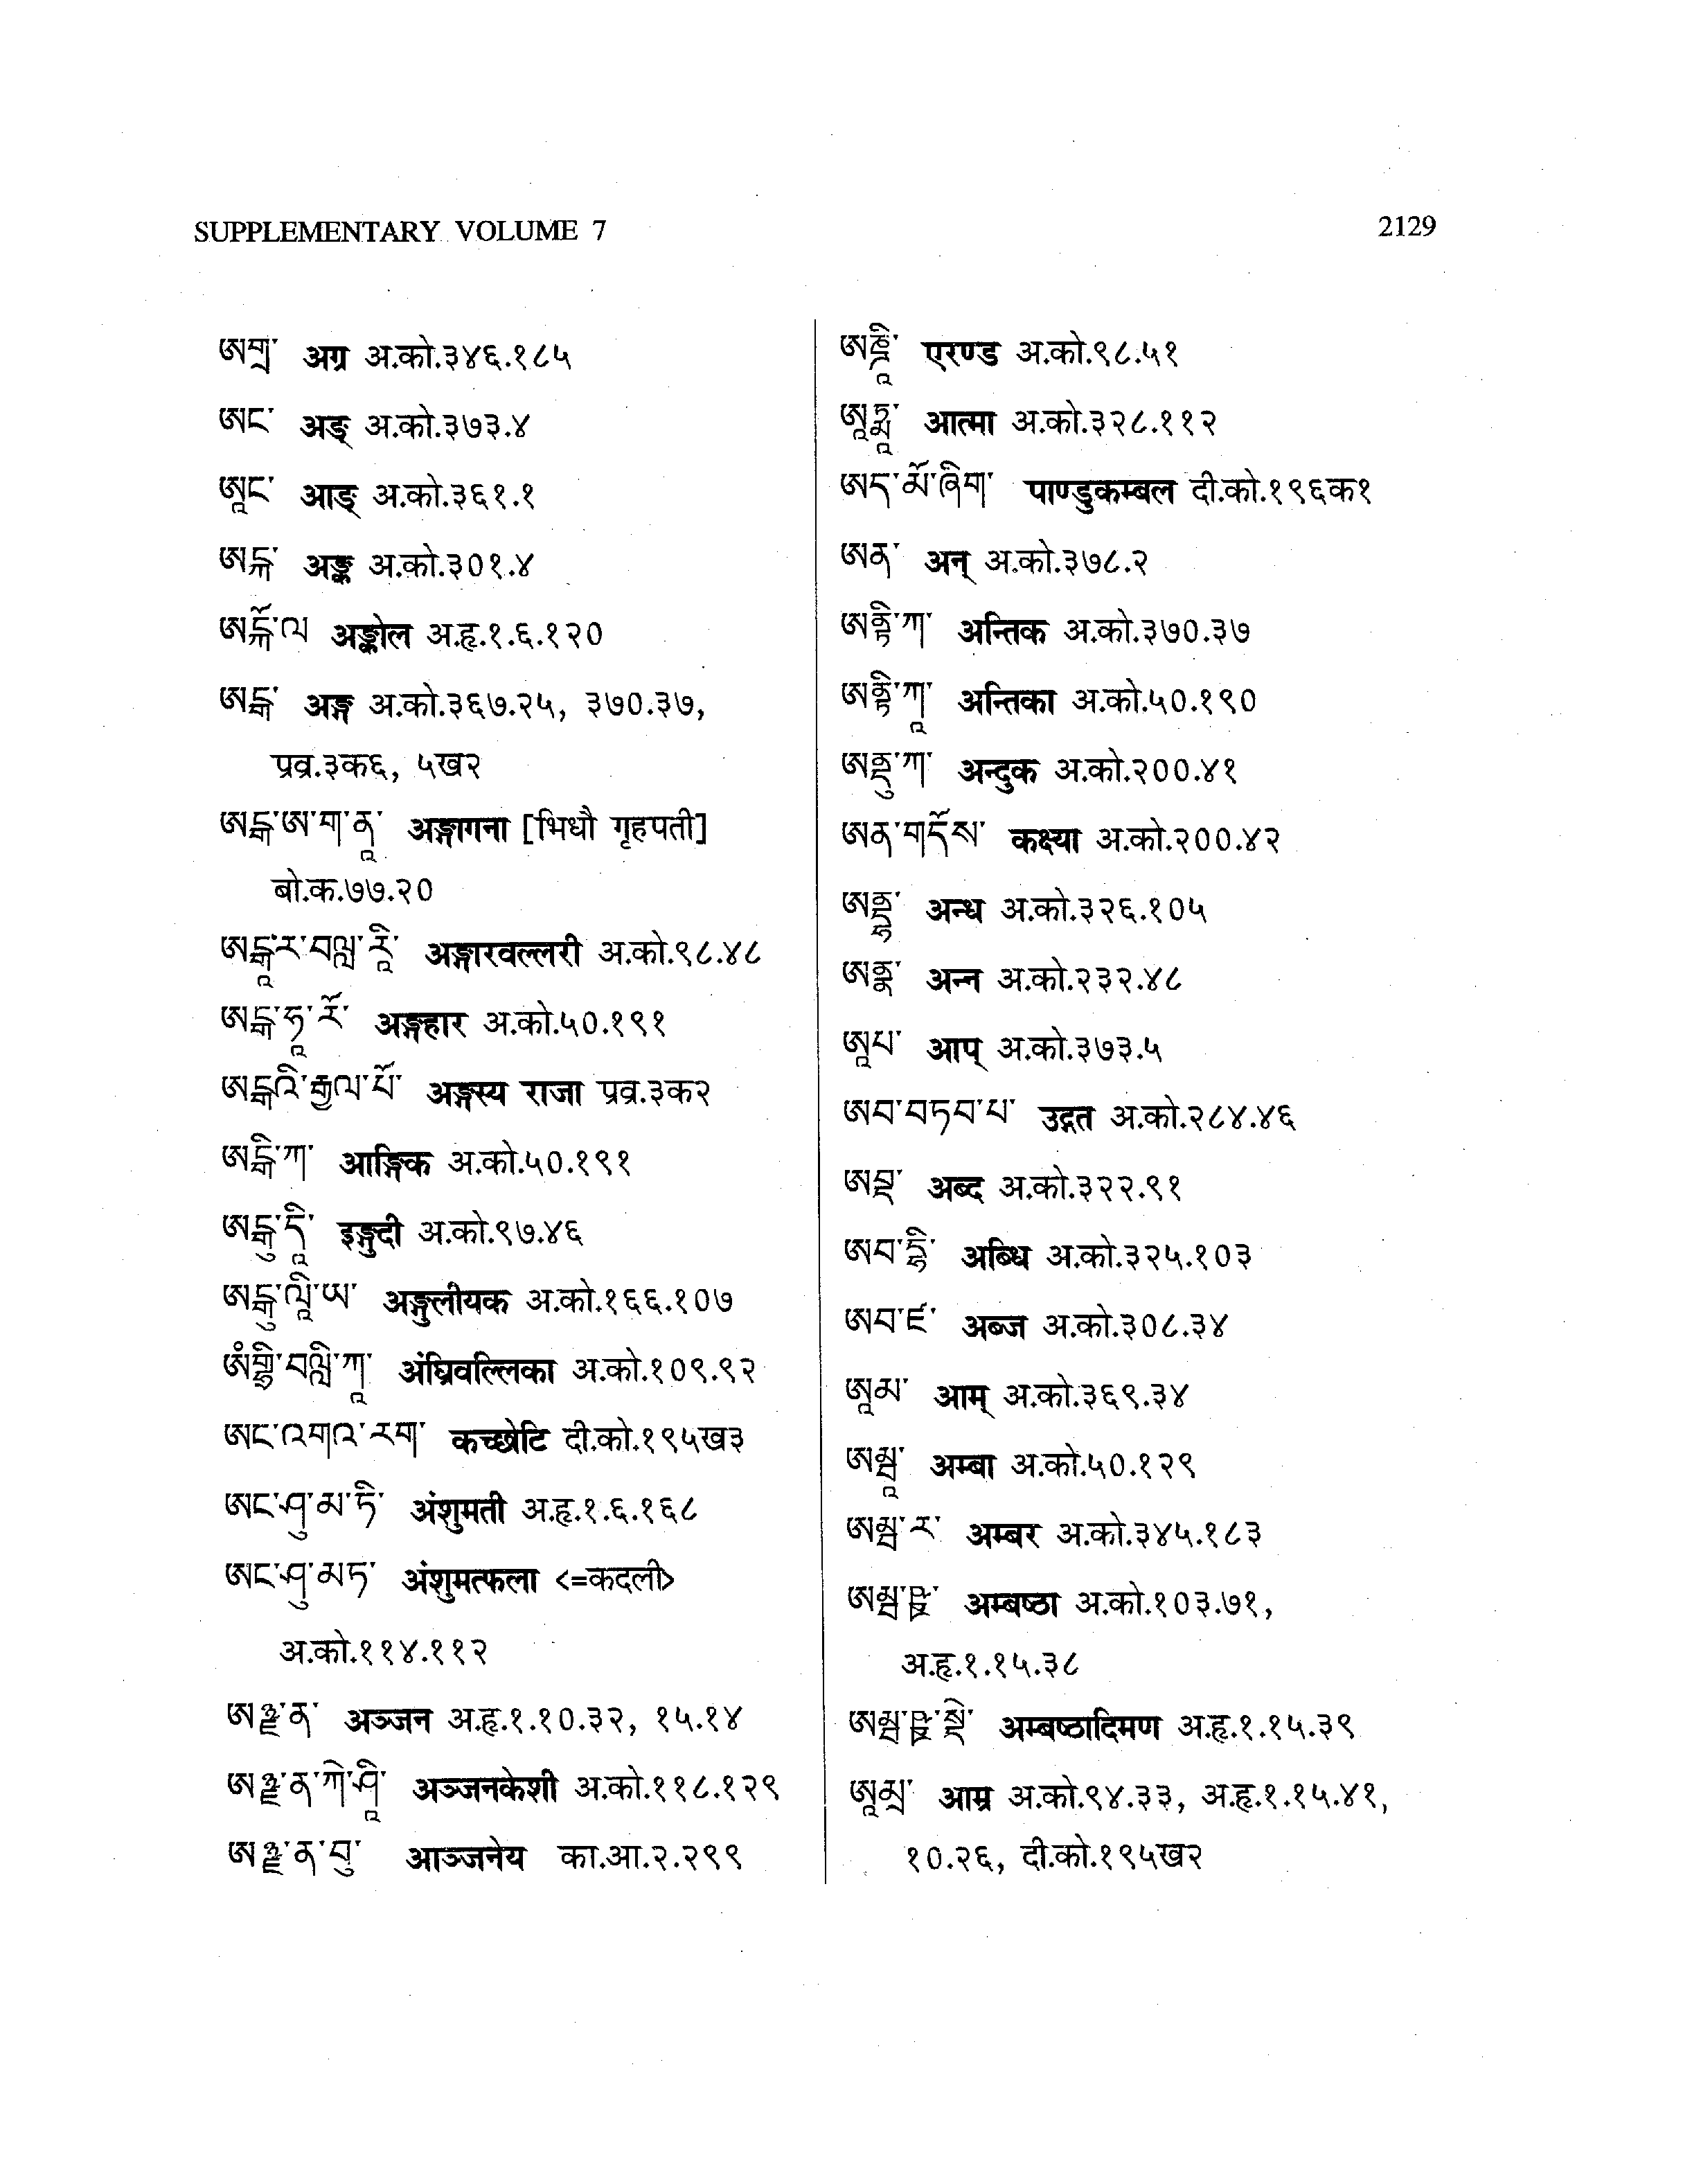 SUPPLEMENTARY VOLUME 7
2129
ཨགྲ་ अग्र अ.को.३४६.१८५
ཨང་ अङ् अ.को.३७३.४
ཨཱང་ आङ् अ.को.३६१.१
ཨངྐ་ अङ्क अ.को.३०१.४
ཨངྐོ་ལ अङ्कोल अ.हृ.१.६.१२०
ཨངྒ་ अङ्ग अ.को.३६७.२५, ३७०.३७,
प्रव्र.३क६, ५ख२
ཨངྒ་ཨ་ག་ནཱ་ अङ्गागना [भिधौ गृहपती]
बो.क.७७.२०
ཨངྒཱ་ར་བལླ་རཱི་ अङ्गारवल्लरी अ.को.९८.४८
ཨངྒ་ཧཱ་རོ་ अङ्गहार अ.को.५०.१९१
ཨངྒའི་རྒྱལ་པོ་ अङ्गस्य राजा प्रव्र.३क२
ཨངྒི་ཀ་ आङ्गिक अ.को.५०.१९१
ཨངྒུ་དཱི་ इङ्गुदी अ.को.९७.४६
ཨངྒུ་ལཱི་ཡ་ अङ्गुलीयक अ.को.१६६.१०७
ཨཾགྷྲི་བལླི་ཀཱ་ अंघ्रिवल्लिका अ.को.१०९.९२
ཨང་འགའ་རག་ कच्छोटि दी.को.१९५ख३
ཨང་ཤུ་མ་ཏི་ अंशुमती अ.हृ.१.६.१६८
ཨང་ཤུ་མཏ་ अंशुमत्फला <=कदली>
अ.को.११४.११२
ཨཉྫ་ན་ अञ्जन अ.हृ.१.१०.३२, १५.१४
ཨཉྫ་ན་ཀེ་ཤཱི་ अञ्जनकेशी अ.को.११८.१२९
ཨཉྫ་ན་བུ་ आञ्जनेय का.आ.२.२९९
एरण्ड अ.को.९८.५१
ཨཱཏྨཱ་ आत्मा अ.को.३२८.११२
ཨད་མོ་ཞིག་ पाण्डुकम्बल दी.को.१९६क१
ཨན་ अन् अ.को.३७८.२
ཨནྟི་ཀ་ अन्तिक अ.को.३७०.३७
ཨནྟི་ཀཱ་ अन्तिका अ.को.५०.१९०
ཨནྡུ་ཀ་ अन्दुक अ.को.२००.४१
ཨན་གདོས་ कक्ष्या अ.को.२००.४२
ཨནྡྷ་ अन्ध अ.को.३२६.१०५
ཨནྣ་ अन्न अ.को.२३२.४८
ཨཱཔ་ आप् अ.को.३७३.५
ཨབ་བཏབ་པ་ उद्गत अ.को.२८४.४६
ཨབྡ་ अब्द अ.को.३२२.९१
ཨབ་དྷི་ अब्धि अ.को.३२५.१०३
ཨབ་ཛ་ अब्ज अ.को.३०८.३४
ཨཱམ་ आम् अ.को.३६९.३४
ཨམྦཱ་ अम्बा अ.को.५०.१२९
ཨམྦ་ར་ अम्बर अ.को.३४५.१८३
ཨམྦ་ཥྛ་ अम्बष्ठा अ.को.१०३.७१,
अ.हृ.१.१५.३८
ཨམྦ་ཥྛ་སྡེ་ अम्बष्ठादिमण अ.हृ.१.१५.३९
ཨཱམྲ་ आम्र अ.को.९४.३३, अ.हृ.१.१५.४१,
१०.२६, दी.को.१९५ख२